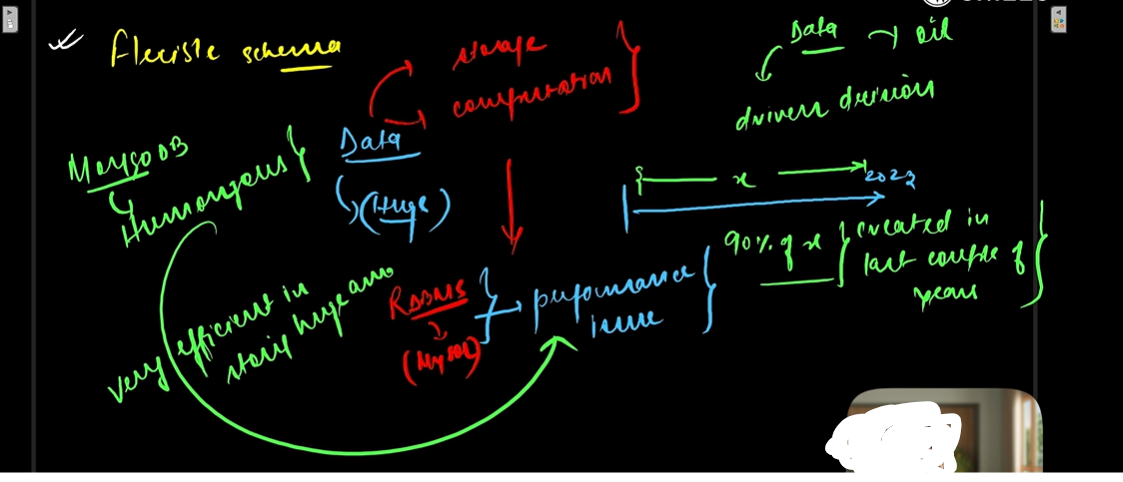 Flexible schema
storage
computation
Data → oil
driven decision
MongoDB
Humongous
Data
(Huge)
x
2023
90% of x
created in
last couple of
years
very efficient in
RDBMS
(MySQL)
performance
issue